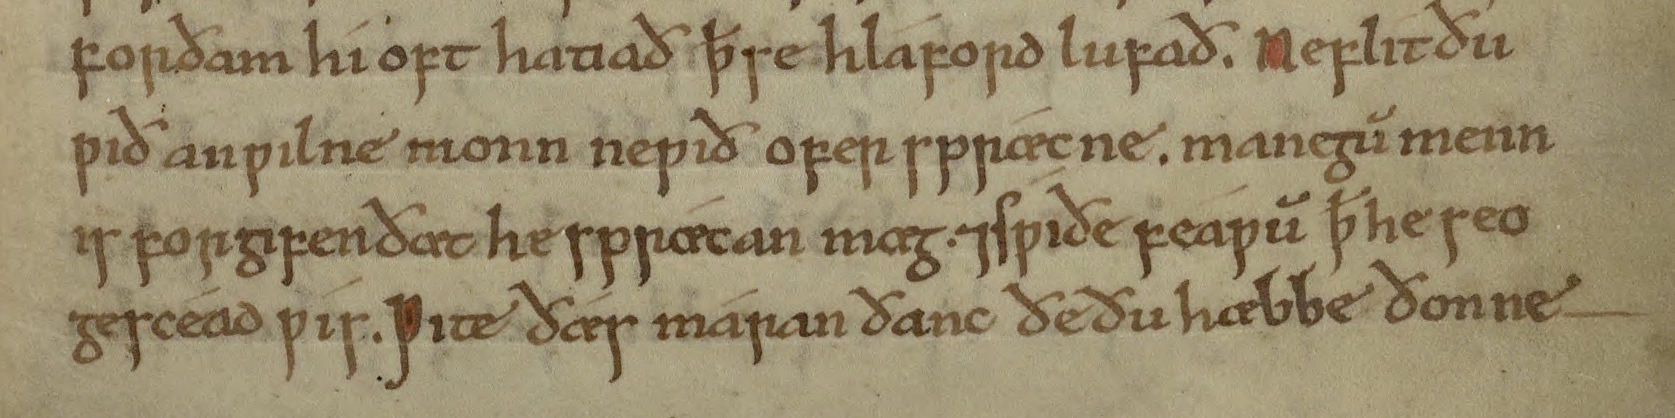 forðam hi oft hatiað ꝥ se hlaford lufað. Ne flit ðu
ƿið anƿilne monn ne ƿið ofer sprǽcne. manegū menn
is forgifen ðæt he sprǽcan mæg. ⁊ sƿiðe feáƿū ꝥ he seo
gesceád ƿis. Ƿite ðæs máran ðanc ðe ðu hæbbe ðonne